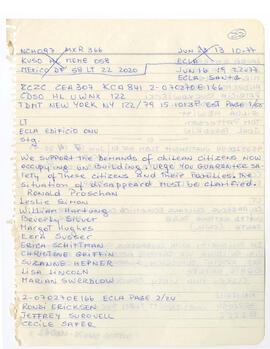 NCH097 MXR366 JUN 13 10.77
KVSO HL MEHE 058 ECLA
MEXICO DF 58 LT 22 2020 JUN 16 19 22077
ECLA SANTG
ZCZC CEA307 KCA841 2-070270E166
CDSO HL UWNX 122
TDMT NEW YORK NY 122/79 15 1013P EST PAGE 1/50
LT
ECLA EDIFICIO ONU
Stg.
WE SUPPORT THE DEMANDS OF CHILEAN CITIZENS NOW
OCCUPYING UN BUILDING. URGE YOU GUARANTEE SA
FETY OF THESE CITIZENS AND THEIR FAMILIES. THE
SITUATION OF DISAPPEARED MUST BE CLARIFIED.
RONALD PROSCHAN
LESLIE SIMON
WILLIAM HARTUNG
BEVERLY SILVER
MARGET HUGHES
EZRA SUSSER
ERICA SCHIFTMAN
CHRISTINE GRIFFIN
SUZANNE HEPNER
LISA LINCOLN
MARIAN SWERDLOW
2-070270E166 ECLA PAGE 2/24
RONA ERICKSEN
JEFFREY SUROVELL
CECILE SAFER